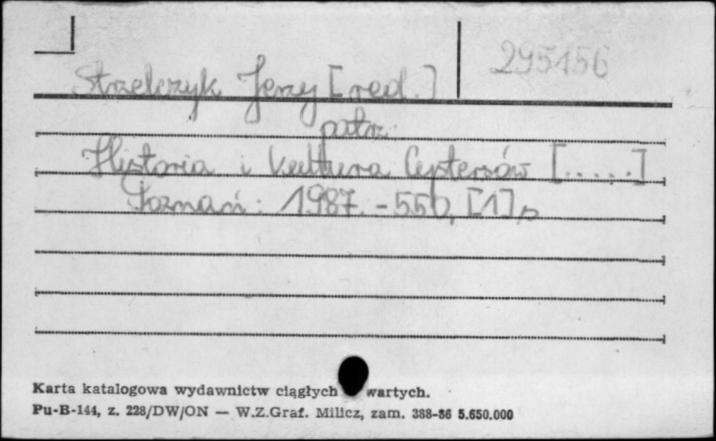 295156
Strzelczyk Jerzy [red.]
patrz
Historia i kultura Cystersów [.....]
Poznań: 1987. - 550, [1] s.
Karta katalogowa wydawnictw ciągłych wartych.
Pu-B-144, z. 228/DW/ON — W.Z.Graf. Milicz, zam. 388-86 5.650.000